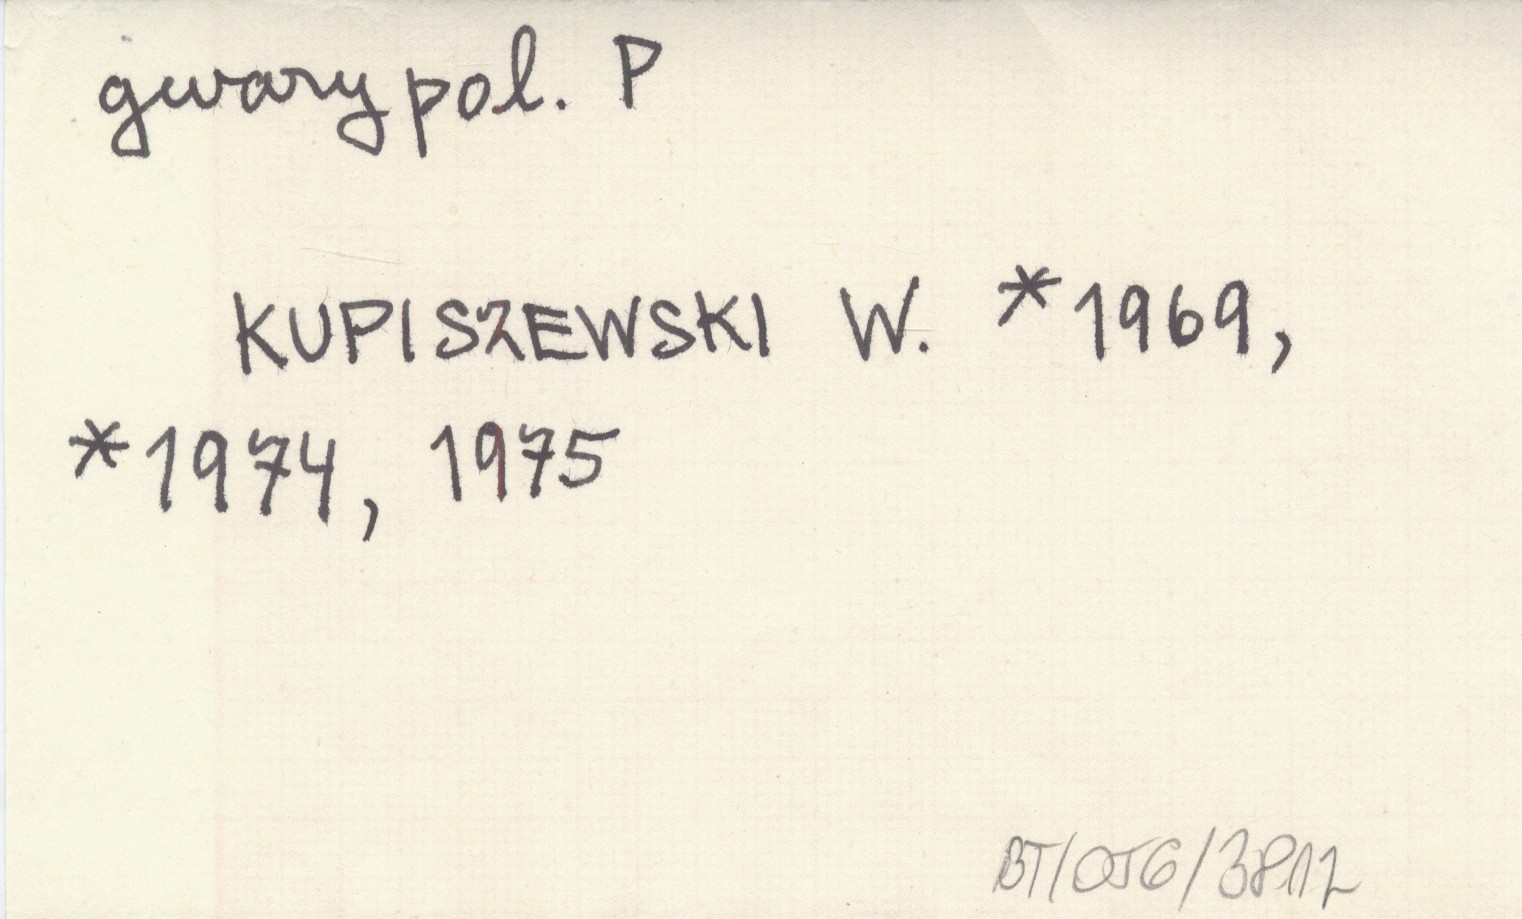 gwary pol. P
KUPISZEWSKI W. *1969,
*1974, 1975
BT/OJG/3812